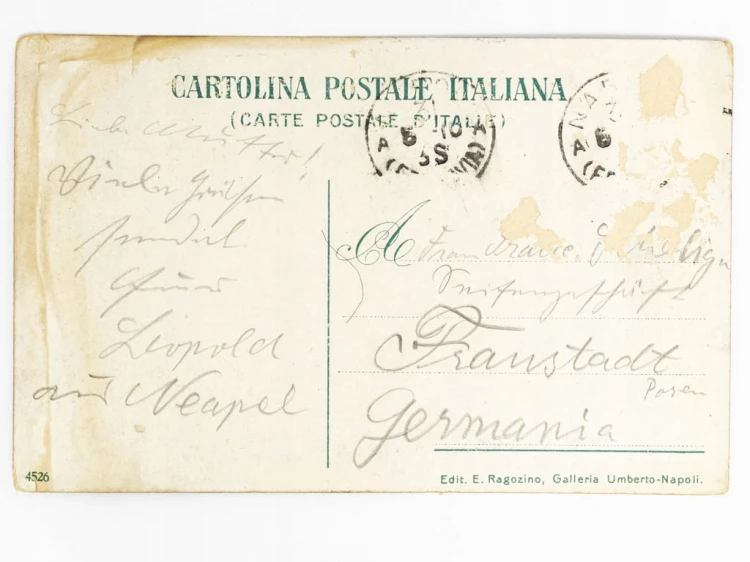 CARTOLINA POSTALE ITALIANA
(CARTE POSTALE D'ITALIE)
Liebe Mutter!
Viele Grüße
sendet
Leopold
aus Neapel
A
Frau
Seifengeschäft
Fraustadt
Posen
Germania
4526
Edit. E. Ragozino, Galleria Umberto-Napoli.